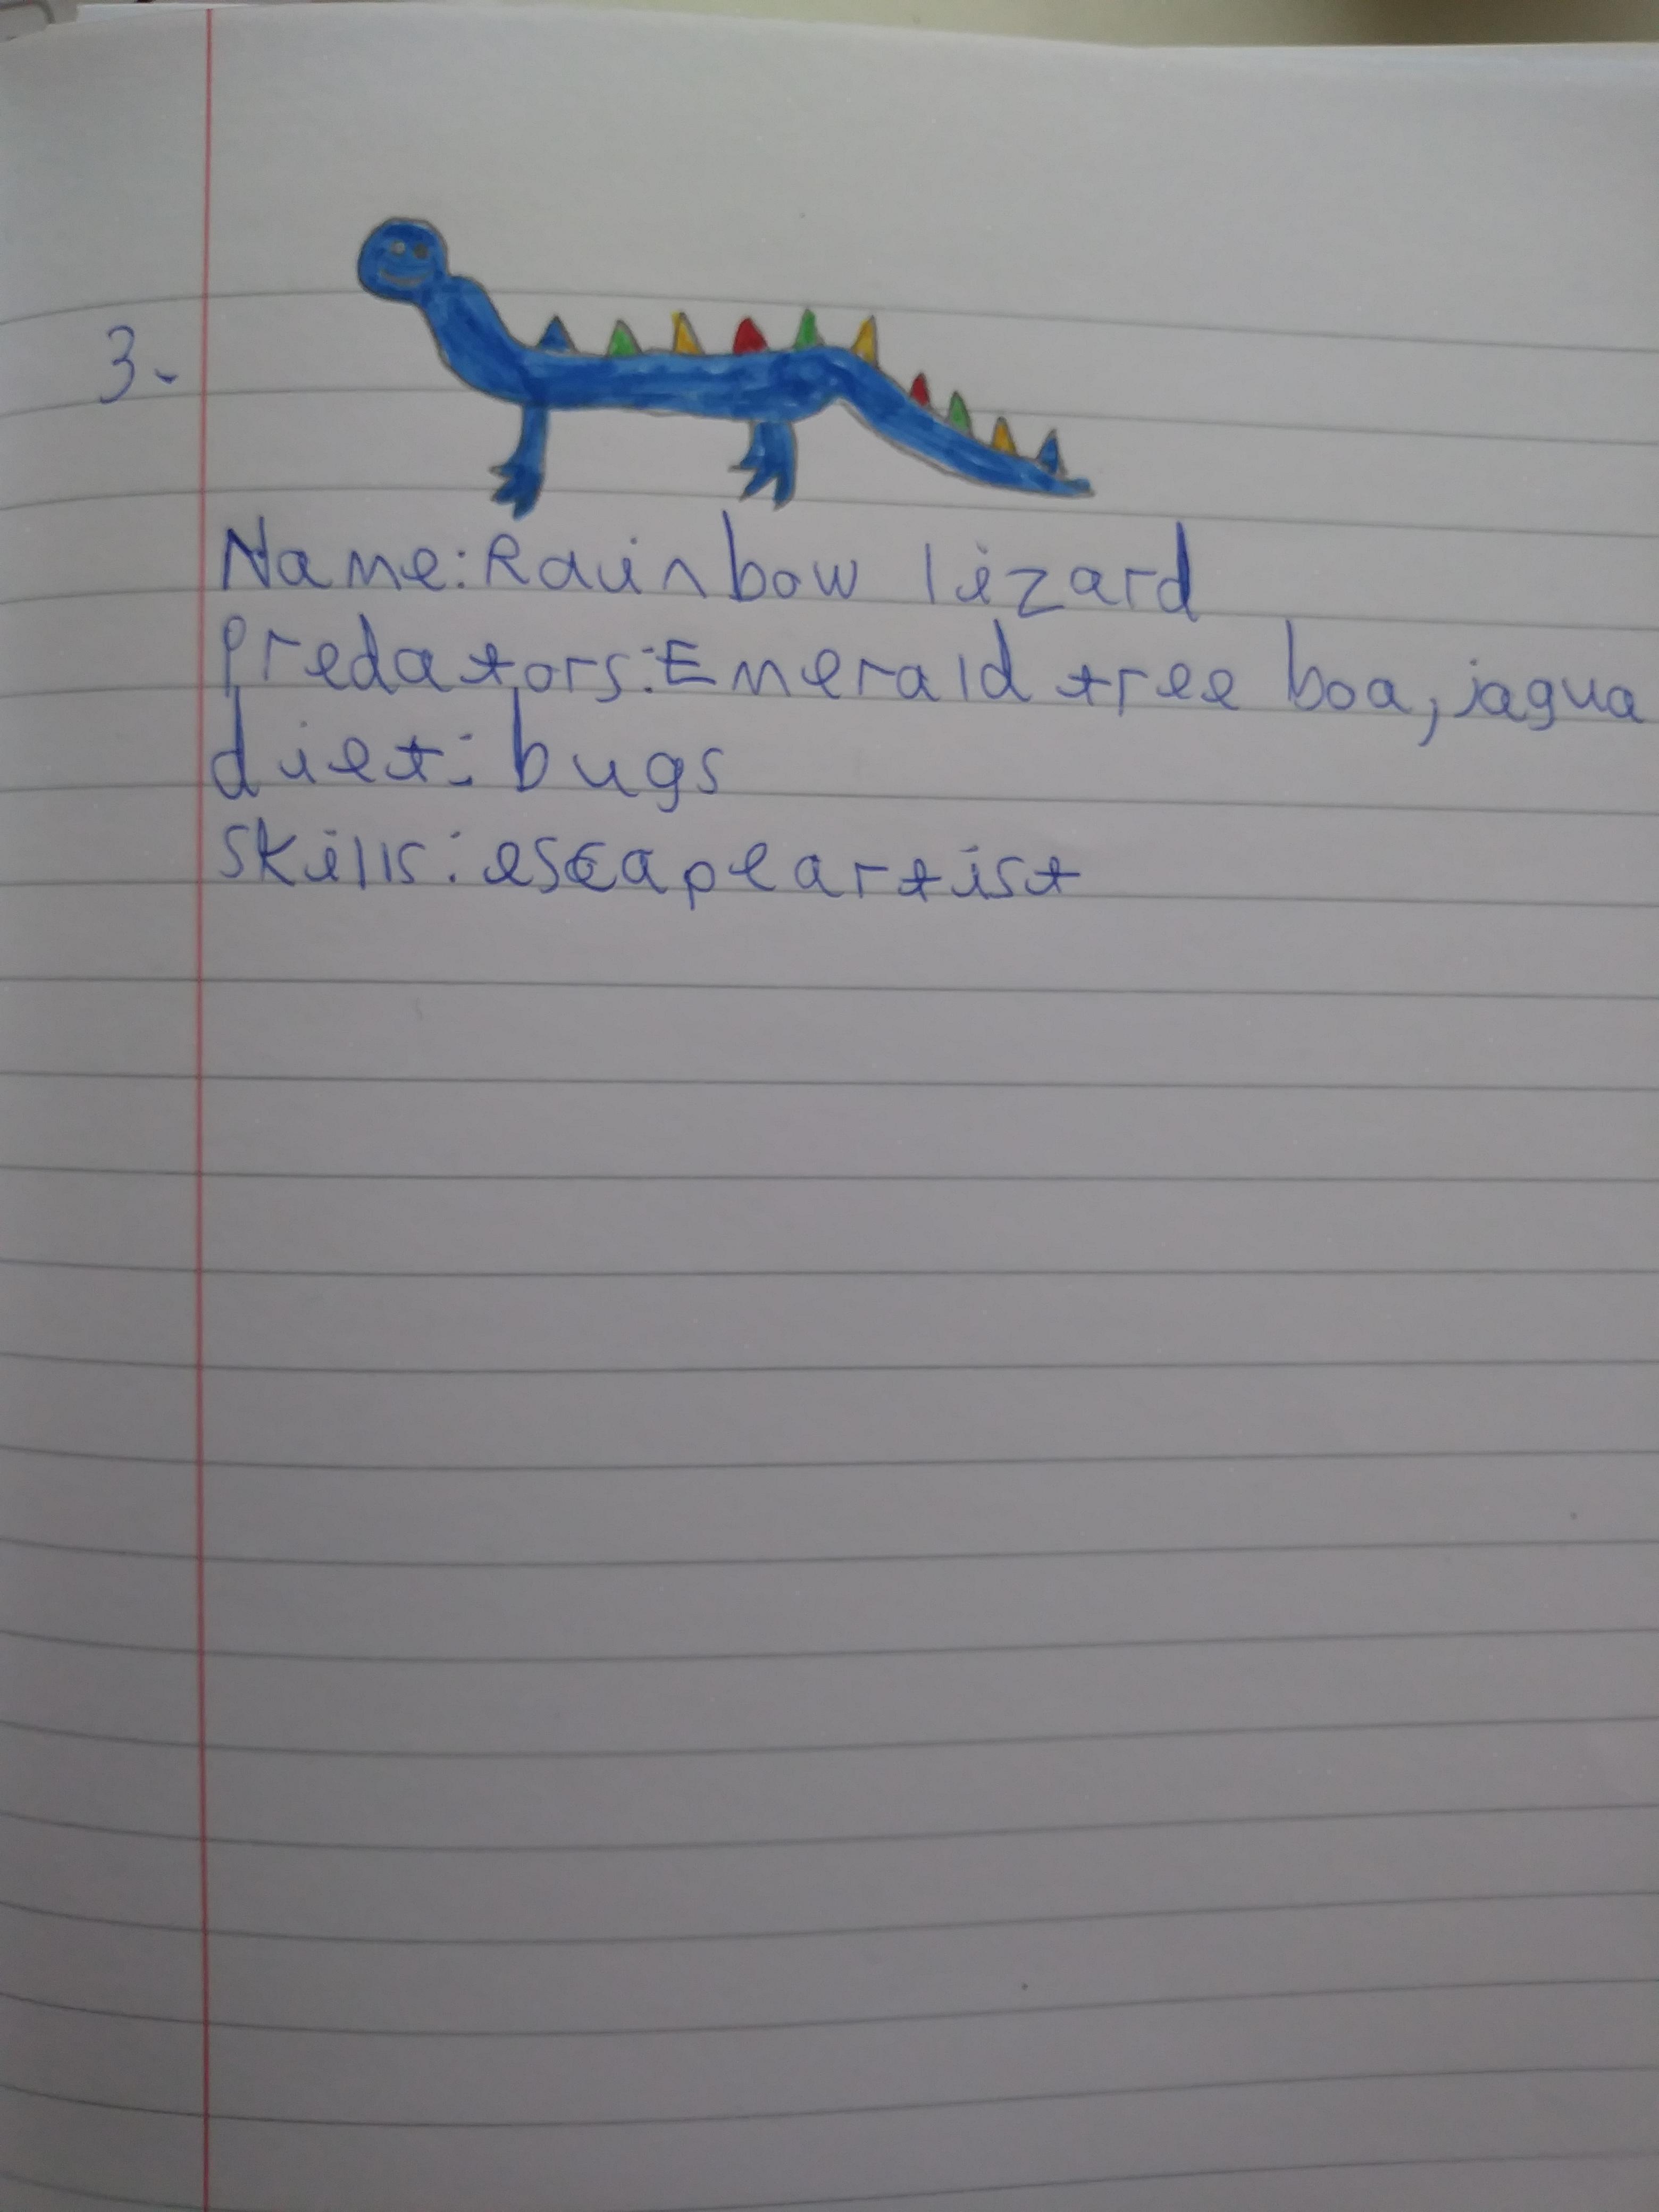 3.
Name: Rainbow lizard
Predators: Emerald tree boa, jagua
diet: bugs
skills: escape artist